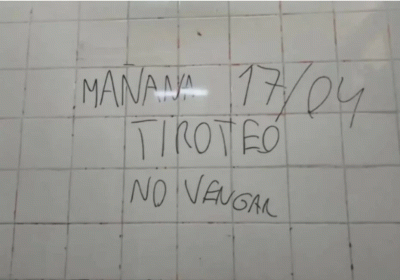 MAÑANA 17/04
TIROTEO
NO VENGAR